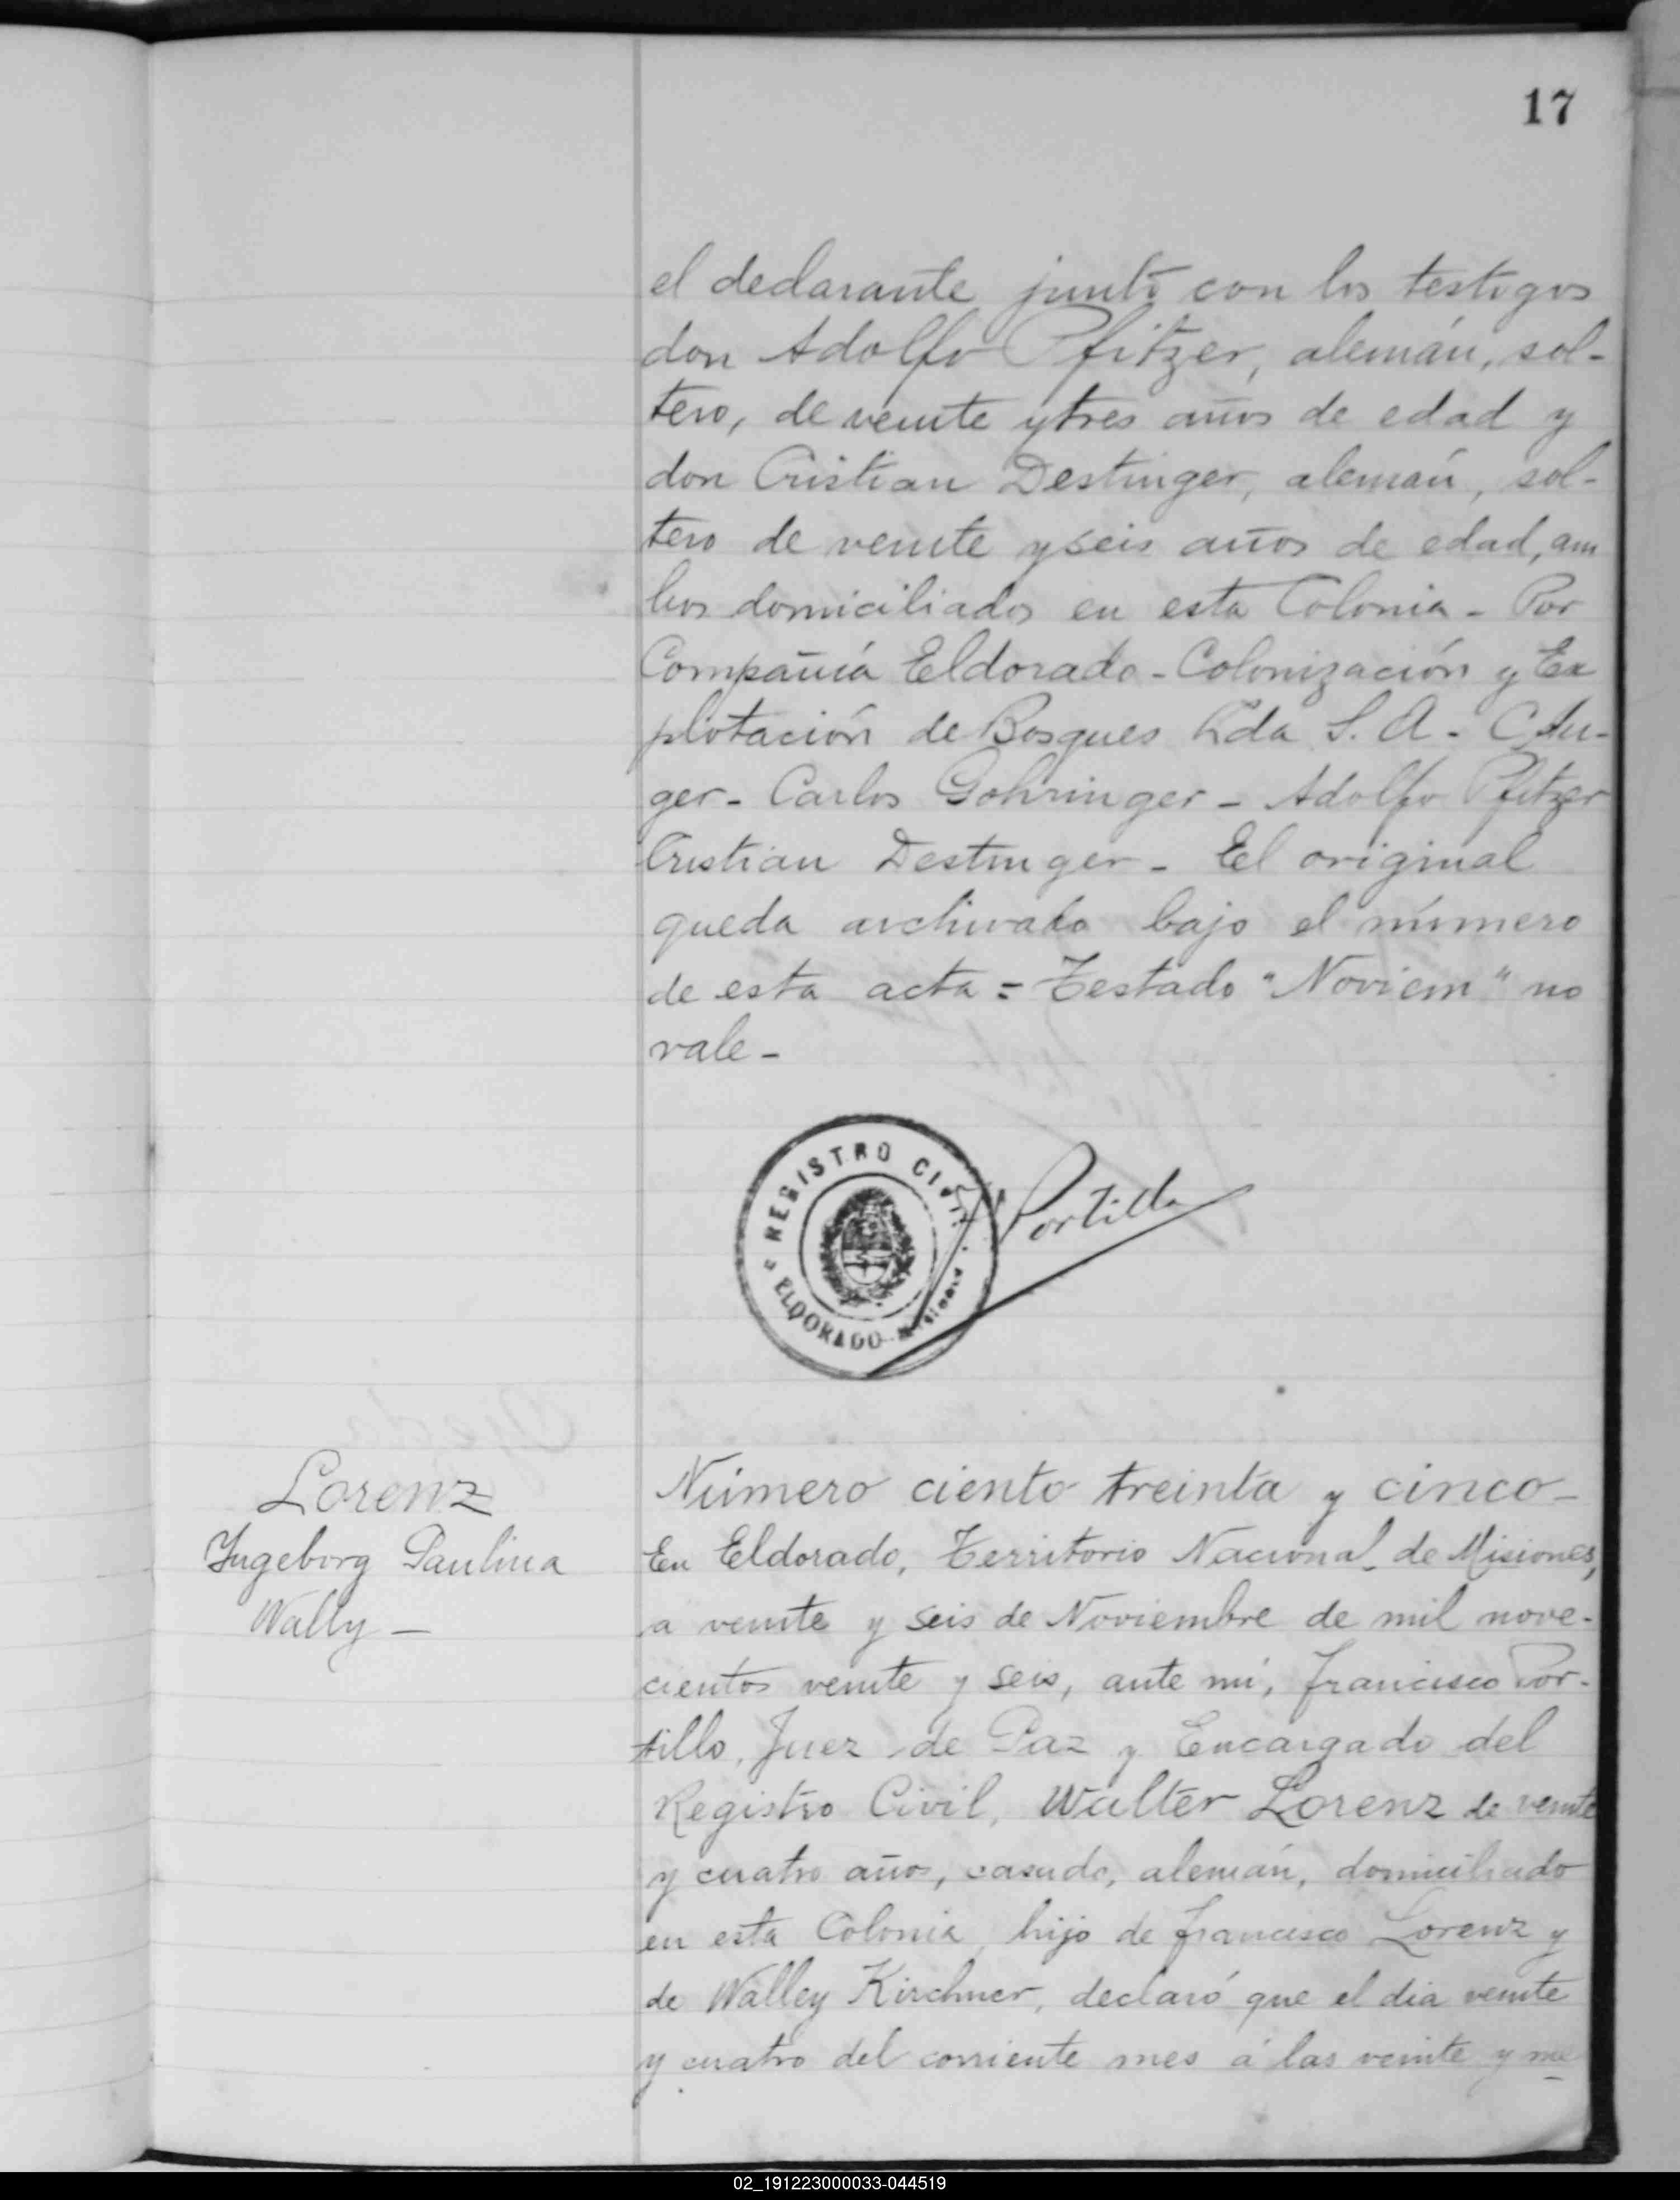 17
el declarante junto con los testigos
don Adolfo Pfitzer, alemán, sol-
tero, de veinte y tres años de edad y
don Cristian Destinger, alemán, sol-
tero de veinte y seis años de edad, am
bos domiciliados en esta Colonia - Por
Compañía Eldorado - Colonización y Ex
plotación de Bosques Ltda S. A. -
ger - Carlos Gohringer - Adolfo Pfitzer
Cristian Destinger - El original
queda archivado bajo el número
de esta acta = Testado "Noviem" no
vale -
REGISTRO CIVIL
ELDORADO Misiones
Portillo
Lorenz
Ingeborg Paulina
Wally -
Número ciento treinta y cinco -
En Eldorado, Territorio Nacional de Misiones,
a veinte y seis de Noviembre de mil nove-
cientos veinte y seis, ante mí, Francisco Por-
tillo, Juez de Paz y Encargado del
Registro Civil, Walter Lorenz de veinte
y cuatro años, casado, alemán, domiciliado
en esta Colonia, hijo de Francisco Lorenz y
de Walley Kirchner, declaró que el dia veinte
y cuatro del corriente mes á las veinte y me
02_191223000033-044519